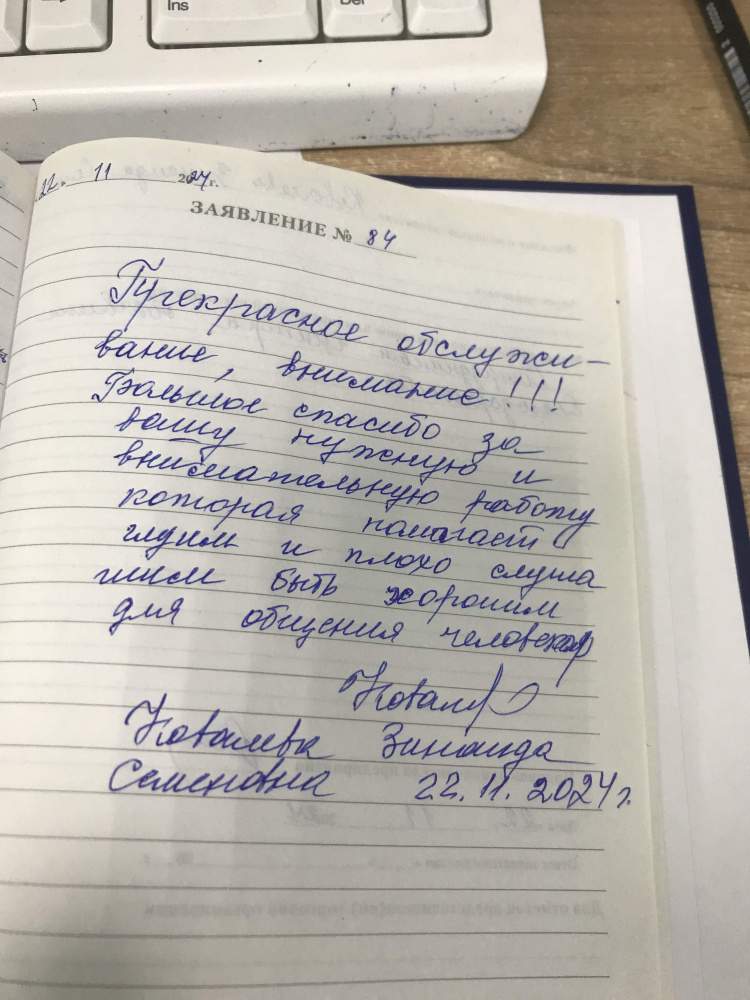 Ins
Del
22. 11 2024г.
ЗАЯВЛЕНИЕ № 84
Прекрасное обслужи-
вание, внимание!!!
Большое спасибо за
вашу нужную и
внимательную работу
которая помагает
глухим и плохо слыша
щим быть хорошим
для общения человеком
Ковалева Зинаида
Семеновна 22.11.2024г.